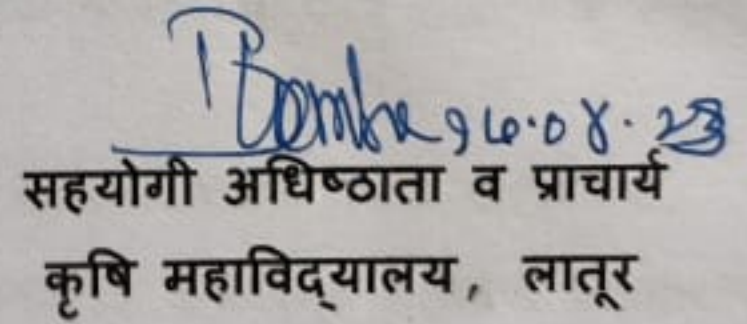 सहयोगी अधिष्ठाता व प्राचार्य
कृषि महाविद्यालय, लातूर